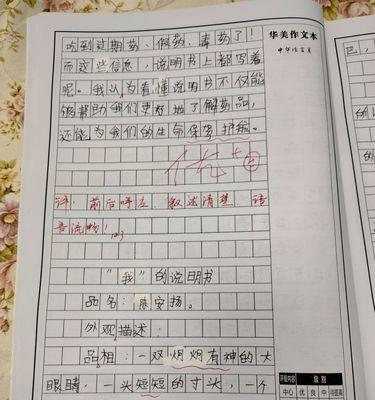 吃到过期药、假药、毒药了！
而这些信息，说明书上都写着
呢。我认为看懂说明书不仅能
够帮助我们更好地了解药品，
还能为我们的生命保驾护航。
优+
评：前后呼应，叙述清楚，语
言流畅！
“我”的说明书
品名：陈安扬。
外观描述：
品相：一双炯炯有神的大
眼睛，一头短短的寸头，一个
华美作文本
评估内容 级别
中心 优 良 中 待提高